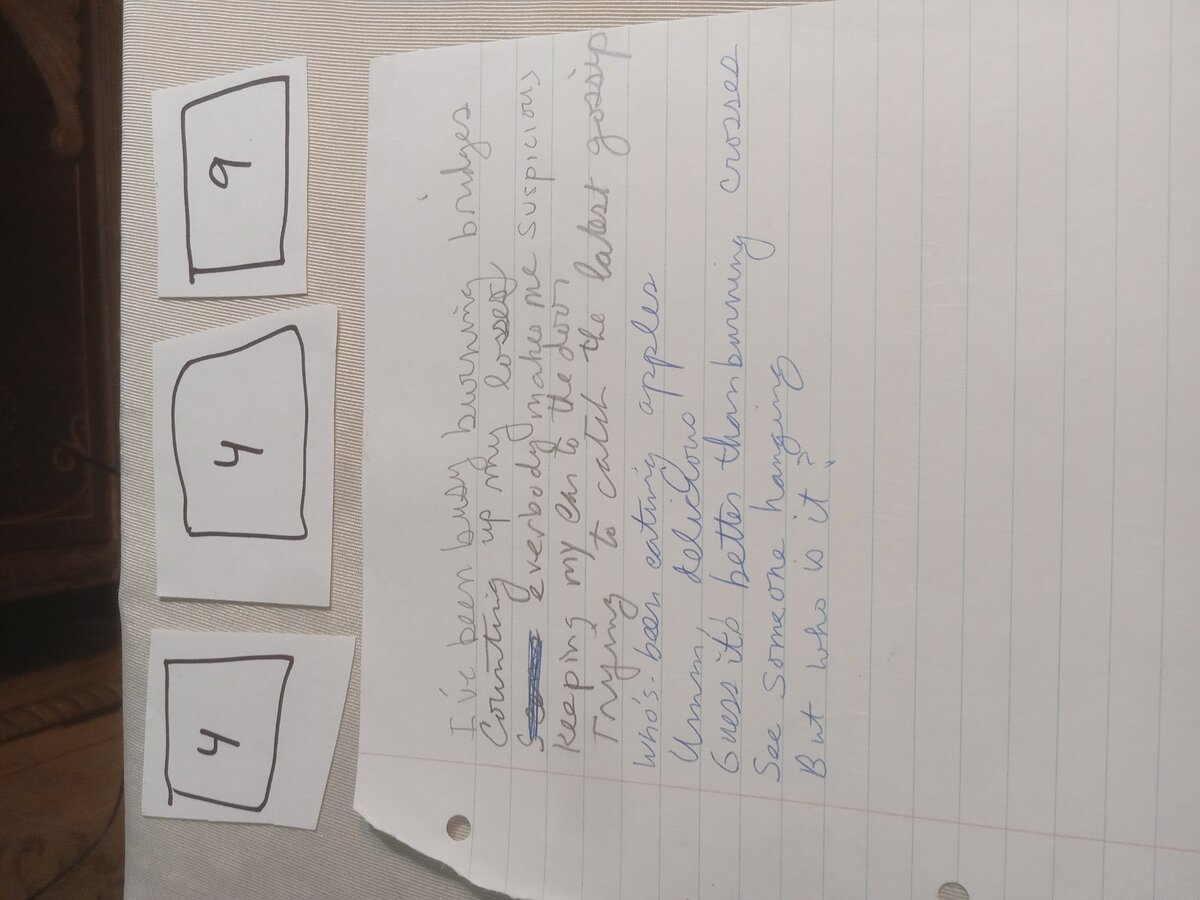 4 4 9
I've been busy burning bridges
Counting up my losses
Everbody makes me suspicious
Keeping my ear to the door
Trying to catch the latest gossip
Who's been eating apples
Umm, delicious
Guess it's better than burning crosses
See someone hanging
But who is it?